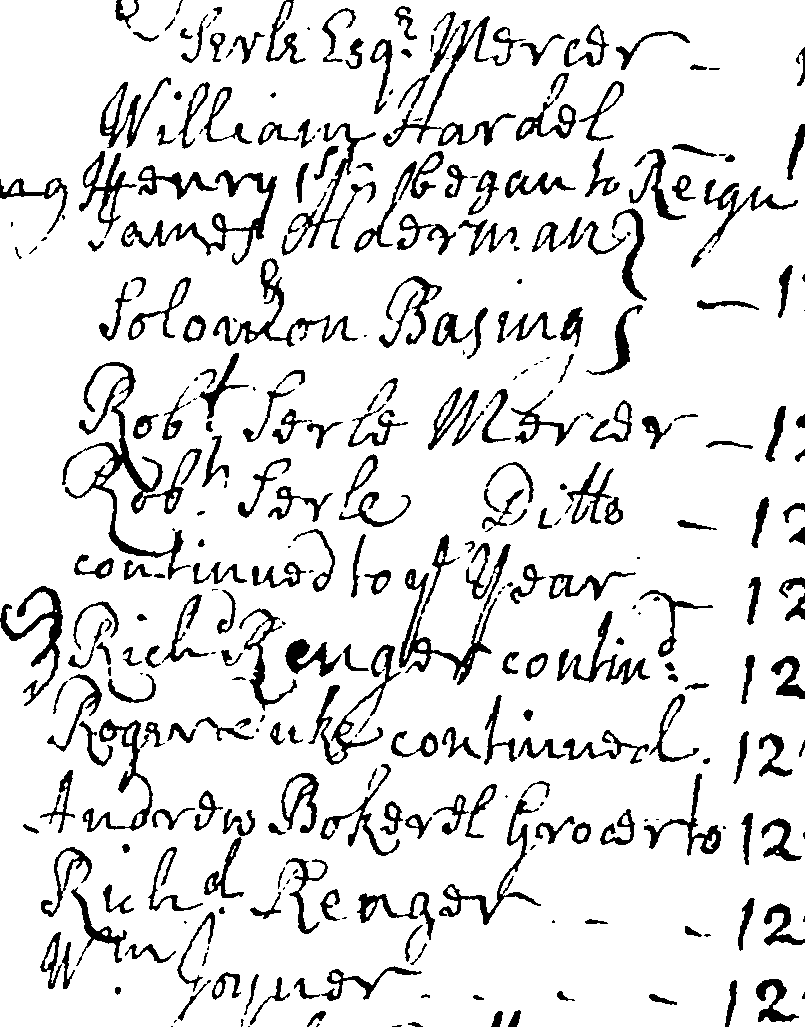 Serle Esqr. Mercer -
William Hardel
Henry began to Reign
James Alderman
Solomon Basing - 1
Robt. Serle Mercer - 12
Robt. Serle Ditto - 12
continued to ye Year - 12
Richd. Renger contind. - 12
Roger Duke continued. 12
Andrew Bokerel Grocer to 12
Richd. Renger - - 12
Wm. Joyner - 12